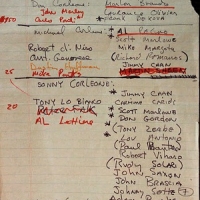 Don Corleone:
Marlon Brando
John Marley
$150
Carlo Ponti
* Frank De Kova
Michael Corleone:
* Al Pacino
Scott Marlowe
Robert di Niro
Mike Margotta
Art. Genovese
(Richard Romanus)
Jimmy Caan
25
Martin Sheen
SONNY CORLEONE:
* JIMMY CAAN
TONY LO BIANCO
CARMINE CARIDI
20
Peter Falk
* SCOTT MARLOWE
AL Lettieri
* DON GORDON
(TONY ZERBE)
LOU ANTONIO
(Paul Banteo
Robert Viharo
(Rudy SOLARI)
JOHN SAXON
JOHN BRASCIA
Johnny Sette 7